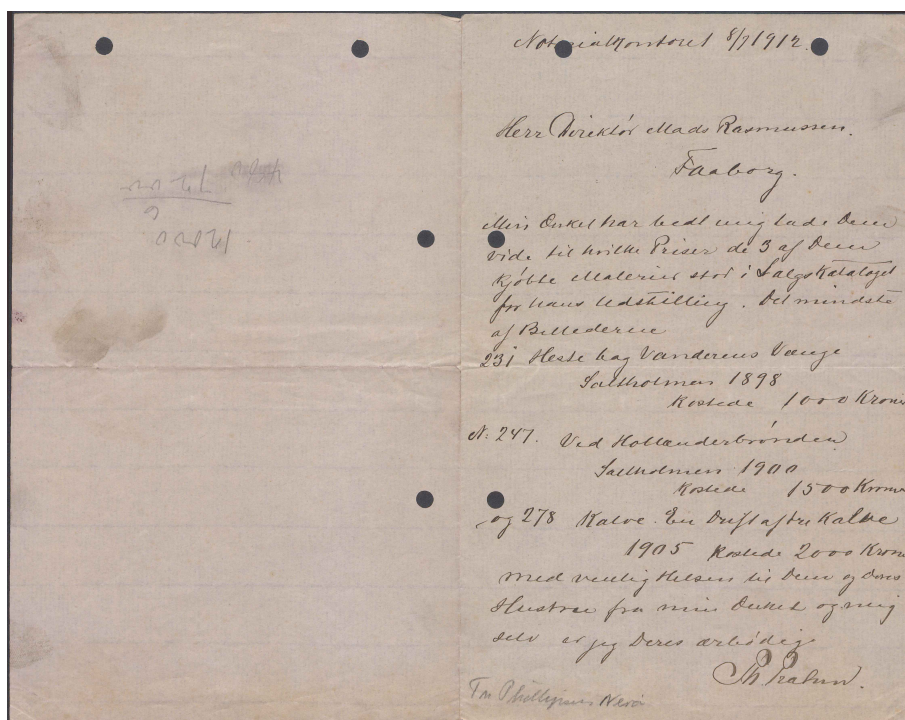 Notarialkontoret 8/7 1912.
Herr Direktör Mads Rasmussen.
Faaborg.
Min Onkel har bedt mig lade Dem
vide til hvilke Priser de 3 af Dem
kjöbte Malerier stod i Salgskataloget
for hans Udstilling. Det mindste
af Billederne
231 Heste bag Vanderens Vænge
Saltholmen 1898
kostede 1000 Kroner
N: 247. Ved Hollænderbrønden
Saltholmen 1900
kostede 1500 Kroner
og 278 Kalve. En Drift Kalve
1905 kostede 2000 Kroner
med venlig Hilsen til Dem og Deres
Hustrue fra min Onkel og mig
selv er jeg Deres ærbödige
Th. Philipsens Nevö